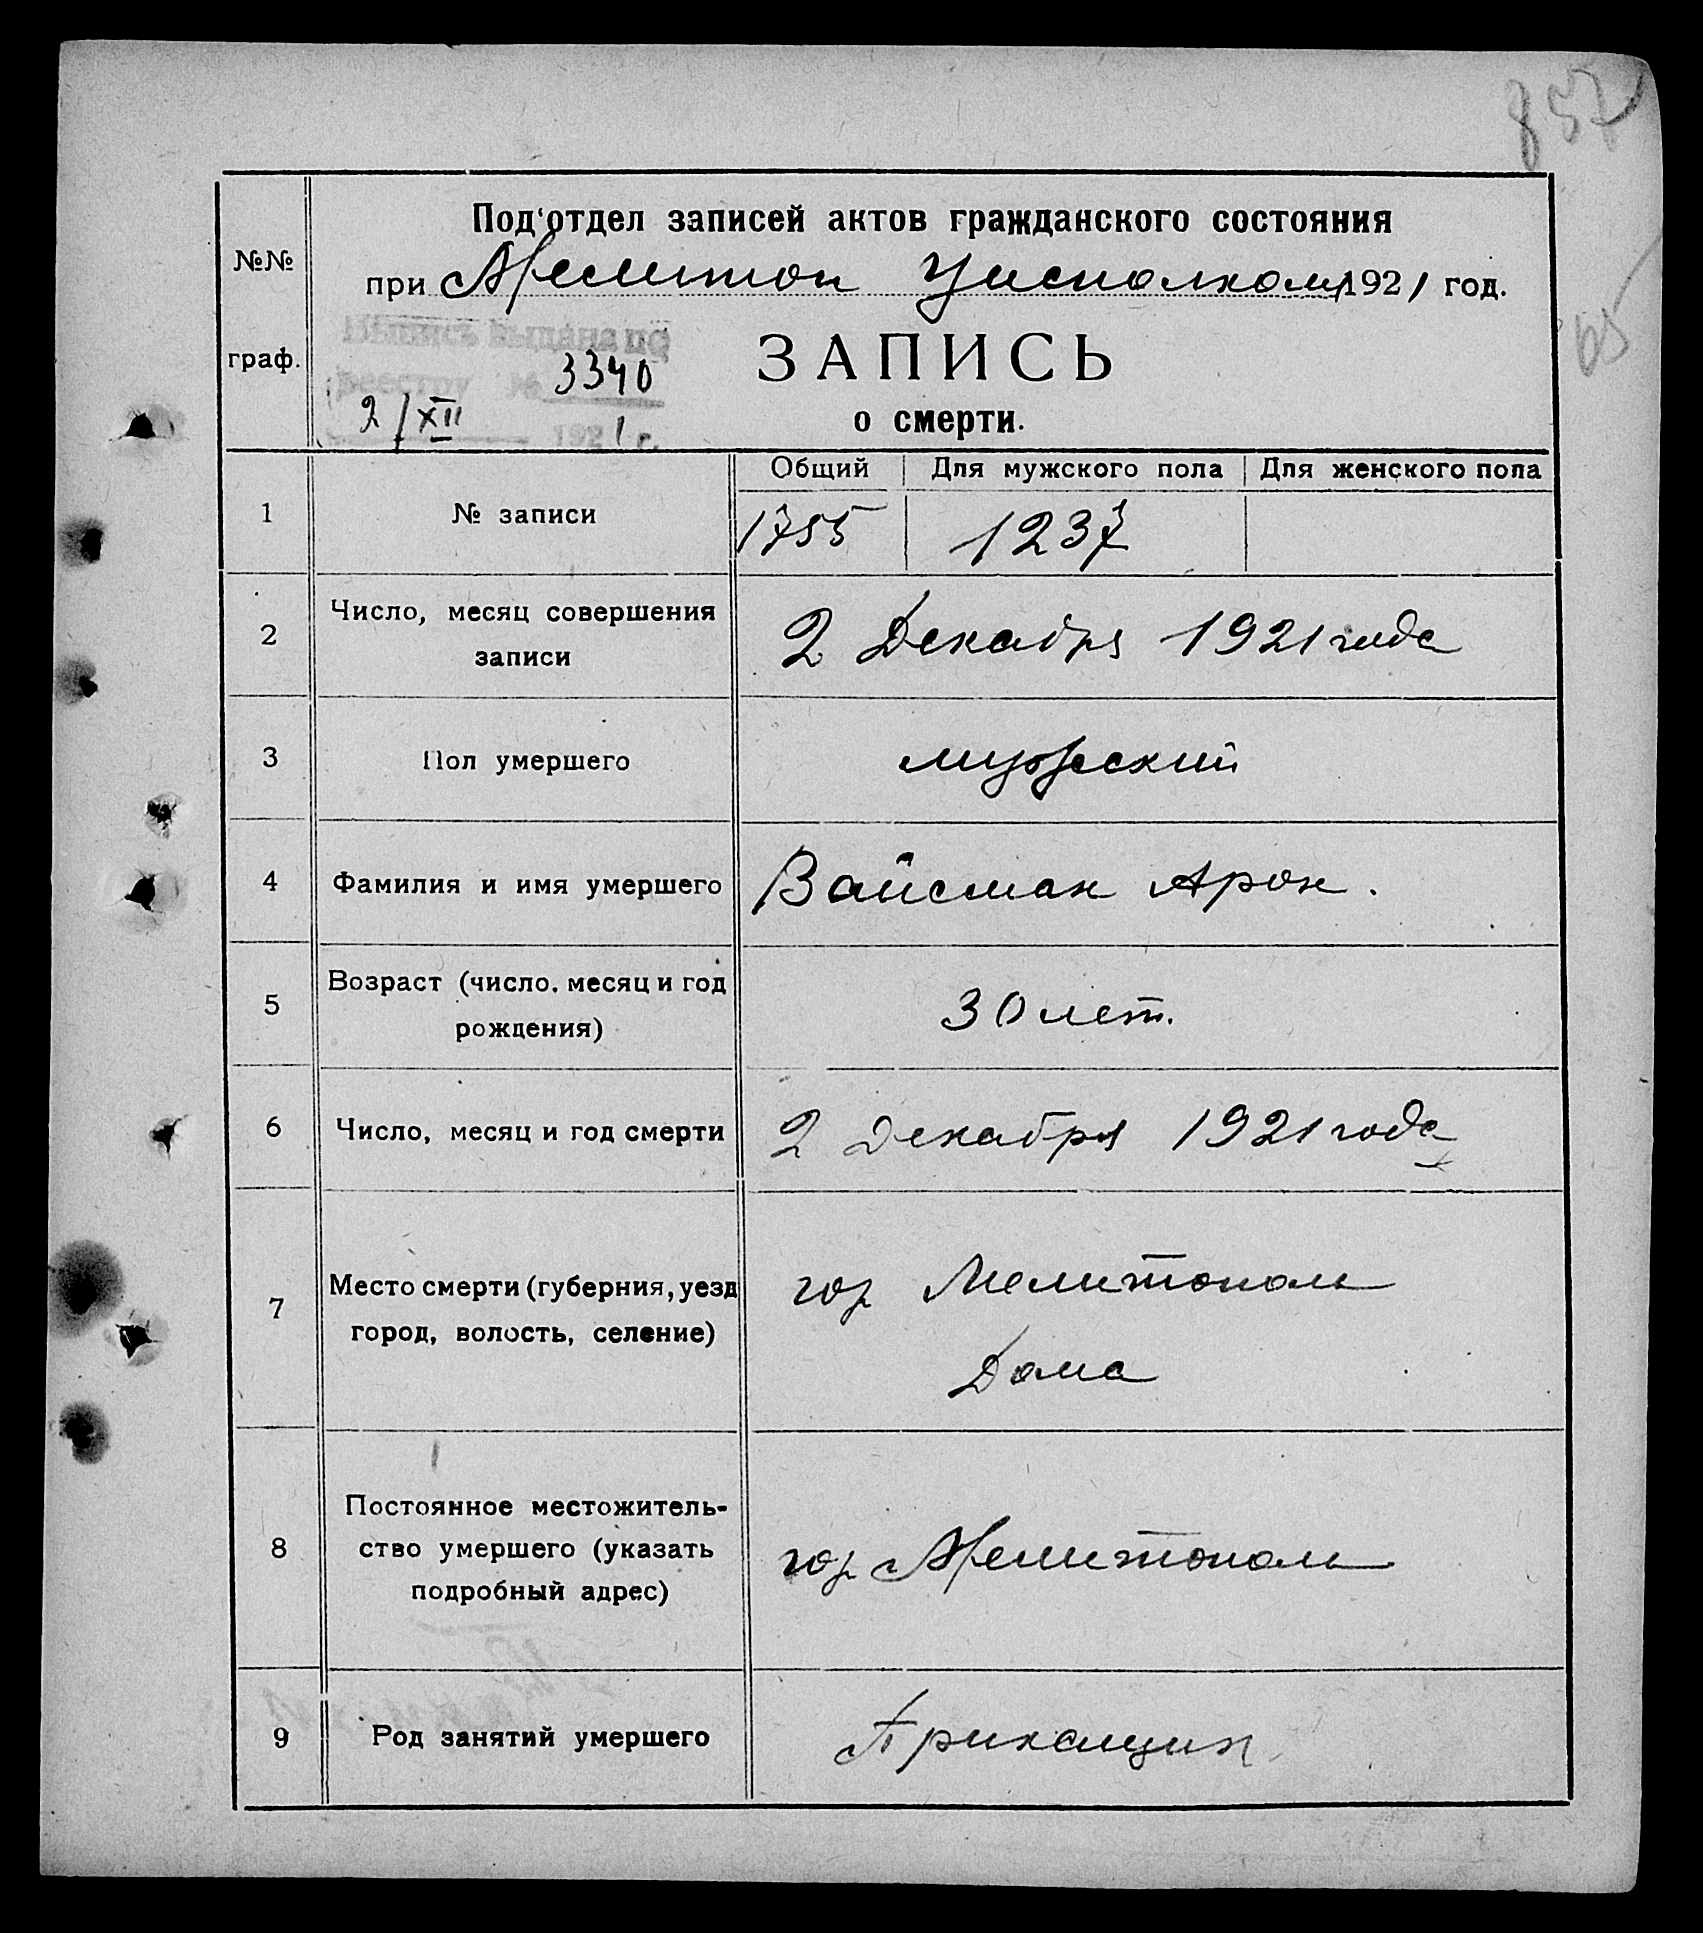 857
Под'отдел записей актов гражданского состояния
при Мелитоп Уисполком, 1921 год.
№№
граф.
Выпись выдана по
реестру № 3340
2/XII 1921 г.
ЗАПИСЬ
о смерти.
65
Общий Для мужского пола Для женского пола
1 № записи 1755 1237
2 Число, месяц совершения
записи
2 Декабря 1921 года
3 Пол умершего мужеский
4 Фамилия и имя умершего Вайсман Арон.
5 Возраст (число, месяц и год
рождения)
30 лет.
6 Число, месяц и год смерти 2 Декабря 1921 года
7 Место смерти (губерния, уезд
город, волость, селение)
гор Мелитополь
Дома
8 Постоянное местожитель-
ство умершего (указать
подробный адрес)
гор Мелитополь
9 Род занятий умершего Прикащик